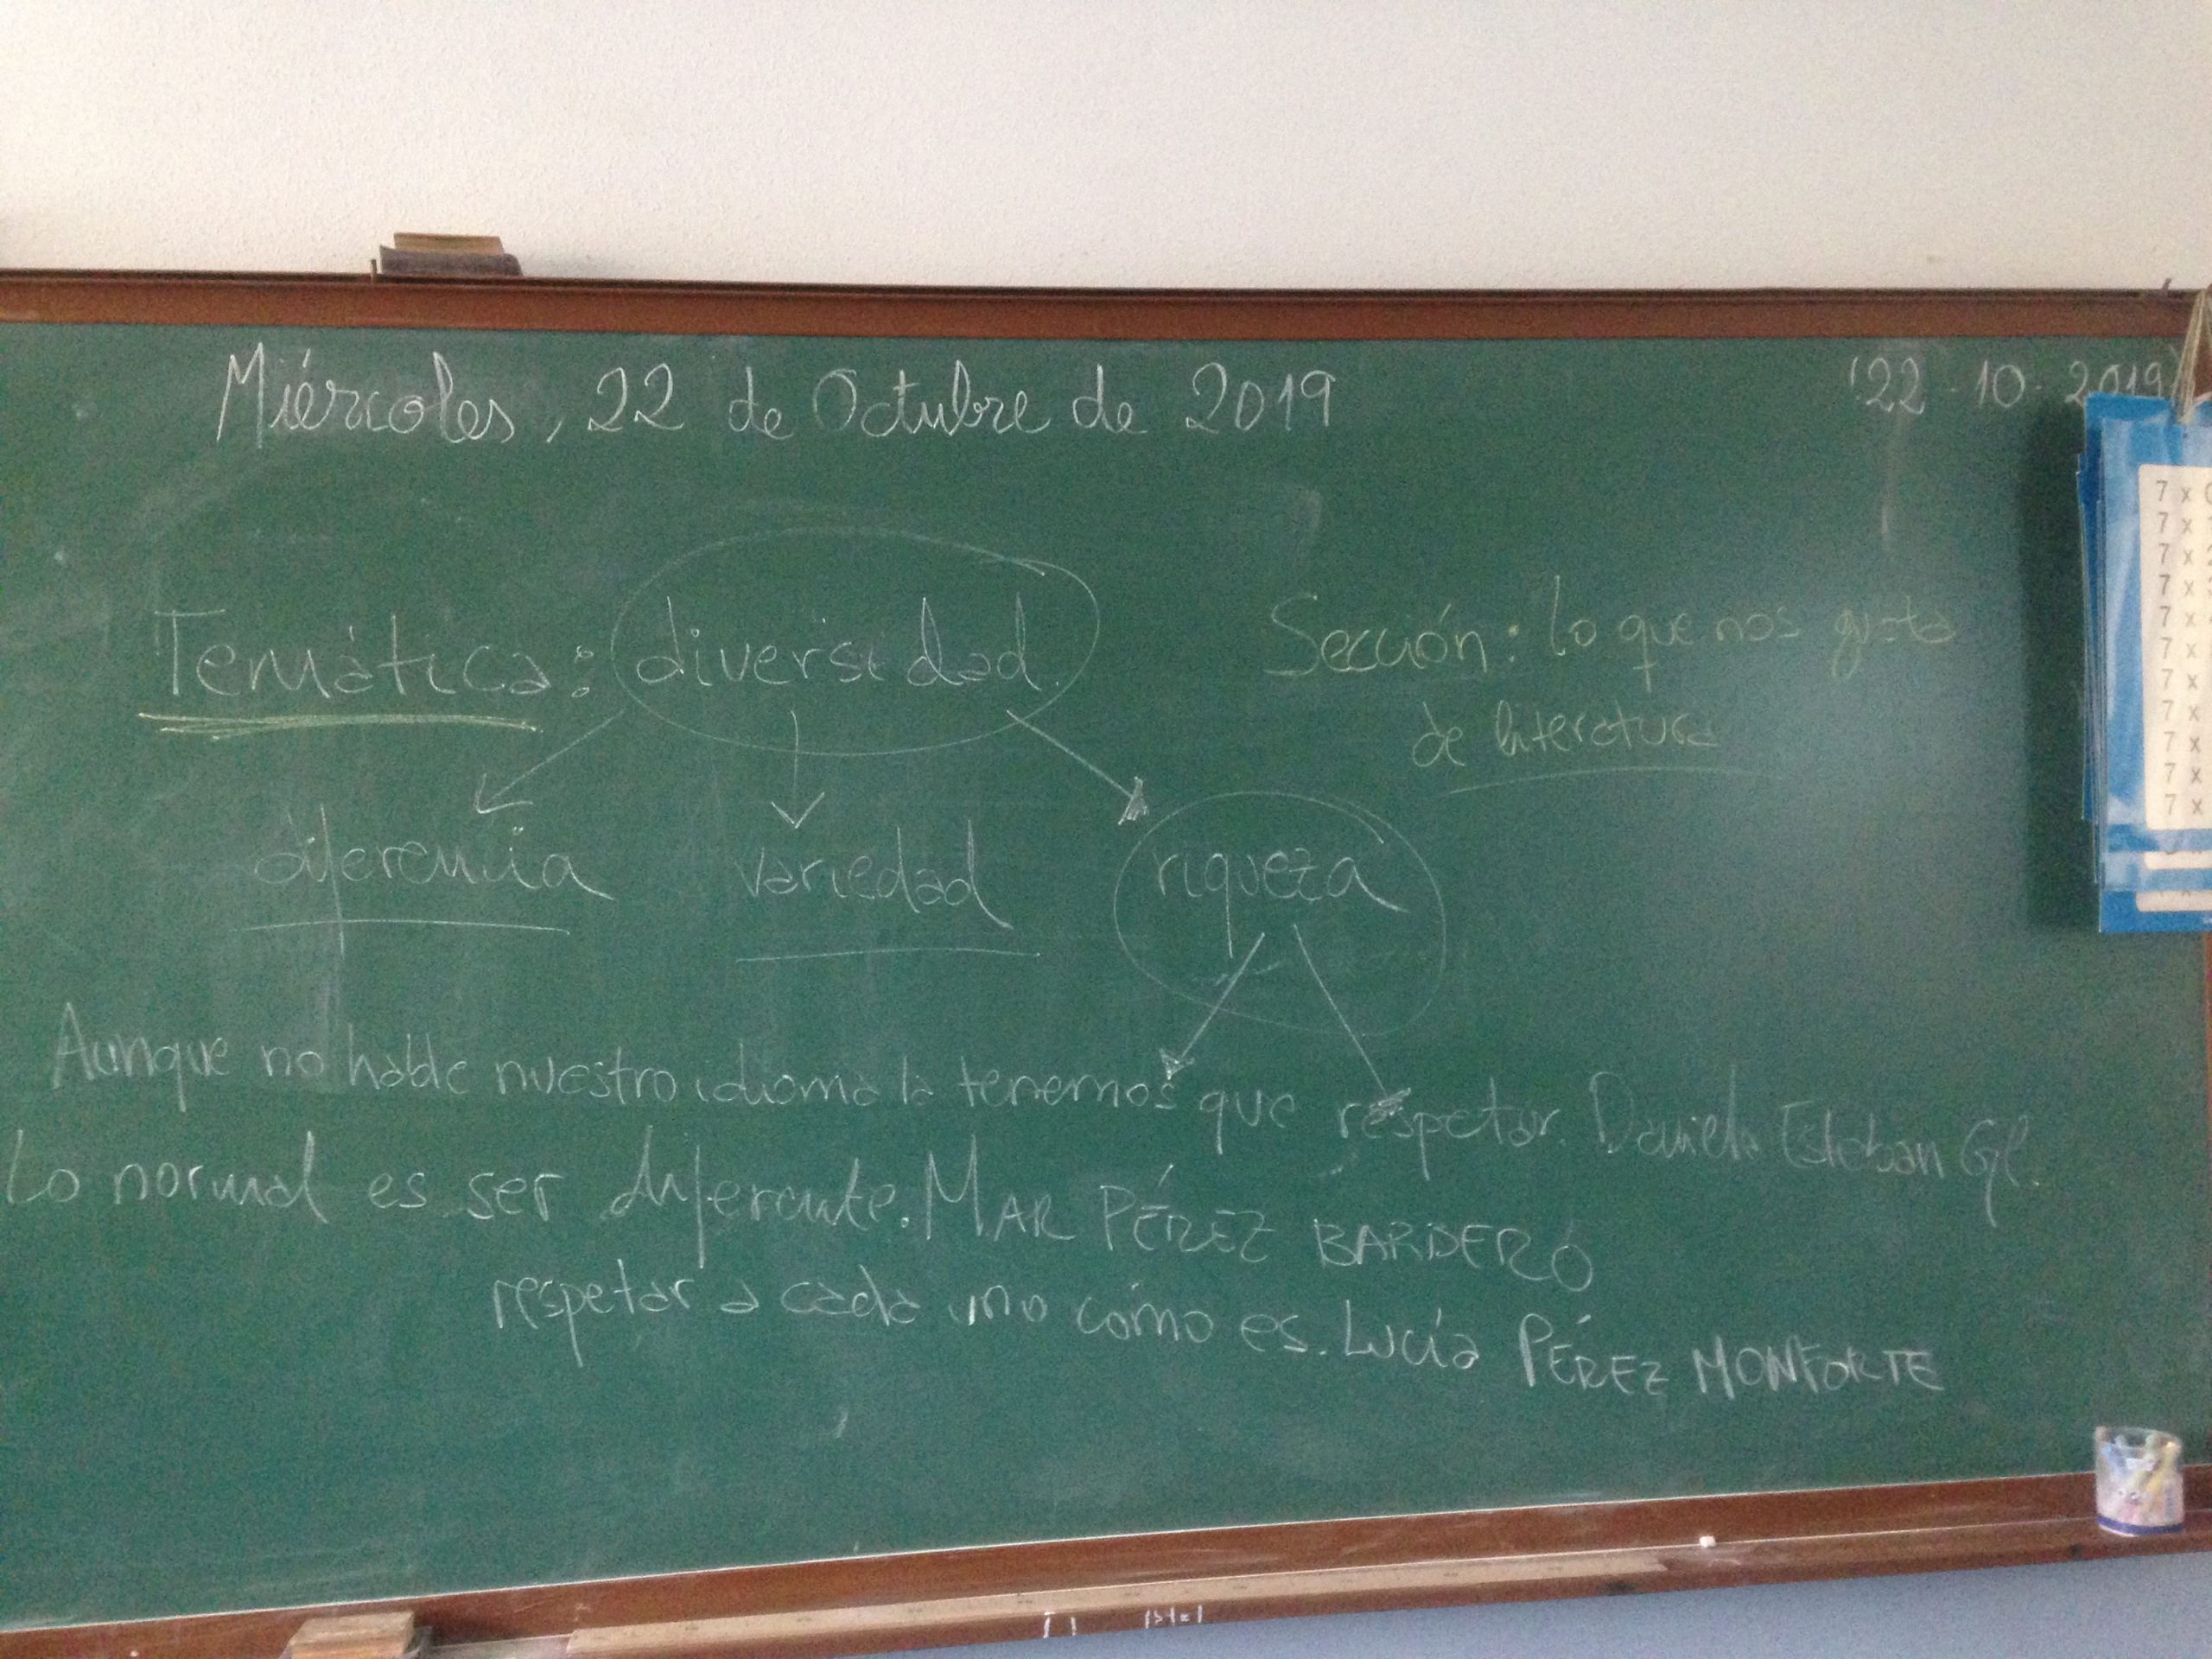 Miércoles, 22 de Octubre de 2019
22 - 10 - 2019
Temática: diversidad.
Sección: lo que nos gusta
de literatura
diferencia variedad riqueza
Aunque no hable nuestro idioma la tenemos que respetar. Daniela Esteban Gil.
Lo normal es ser diferente. MAR PÉREZ BARBERÓ
respetar a cada uno cómo es. Lucía PÉREZ MONFORTE
7 x 0
7 x
7 x 2
7 x
7 x
7 x
7 x
7 x
7 x
7 x
7 x